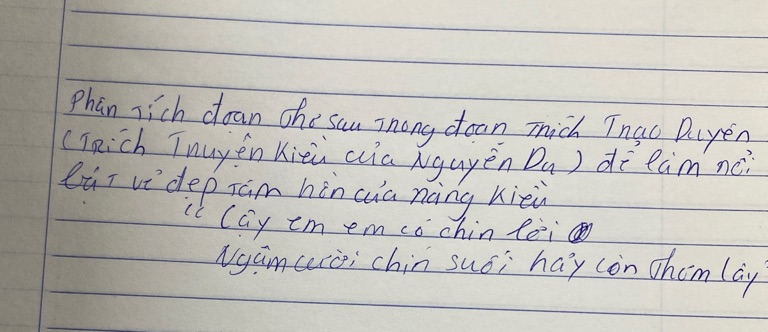 Phân tích đoạn thơ sau trong đoạn trích Trao Duyên
(Trích Truyện Kiều của Nguyễn Du) để làm nổi
bật vẻ đẹp tâm hồn của nàng Kiều
"Cậy em em có chịn lời
Ngậm cười chín suối hãy còn thơm lây"